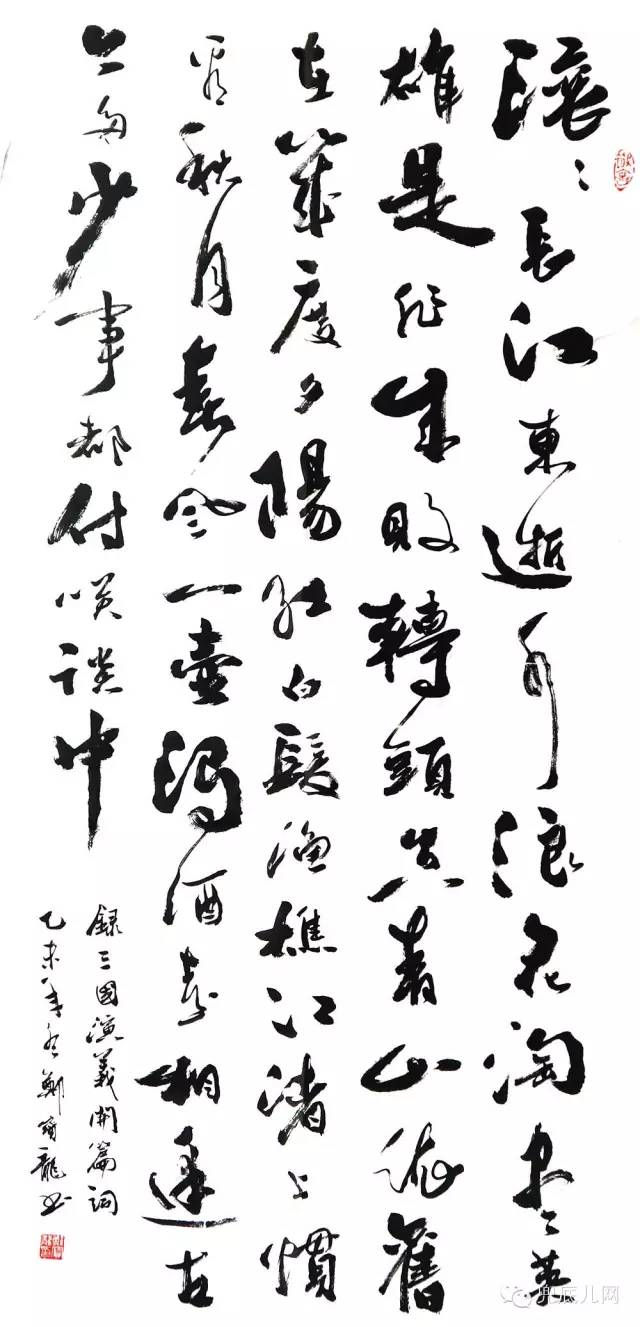 滾〻長江東逝水浪花淘尽英
雄是非成敗轉頭空青山依舊
在幾度夕陽紅白髮漁樵江渚上慣
看秋月春風一壺濁酒喜相逢古
今多少事都付咲談中
錄三國演義開篇詞
乙未年冬鄭寶龍书
兜底儿网